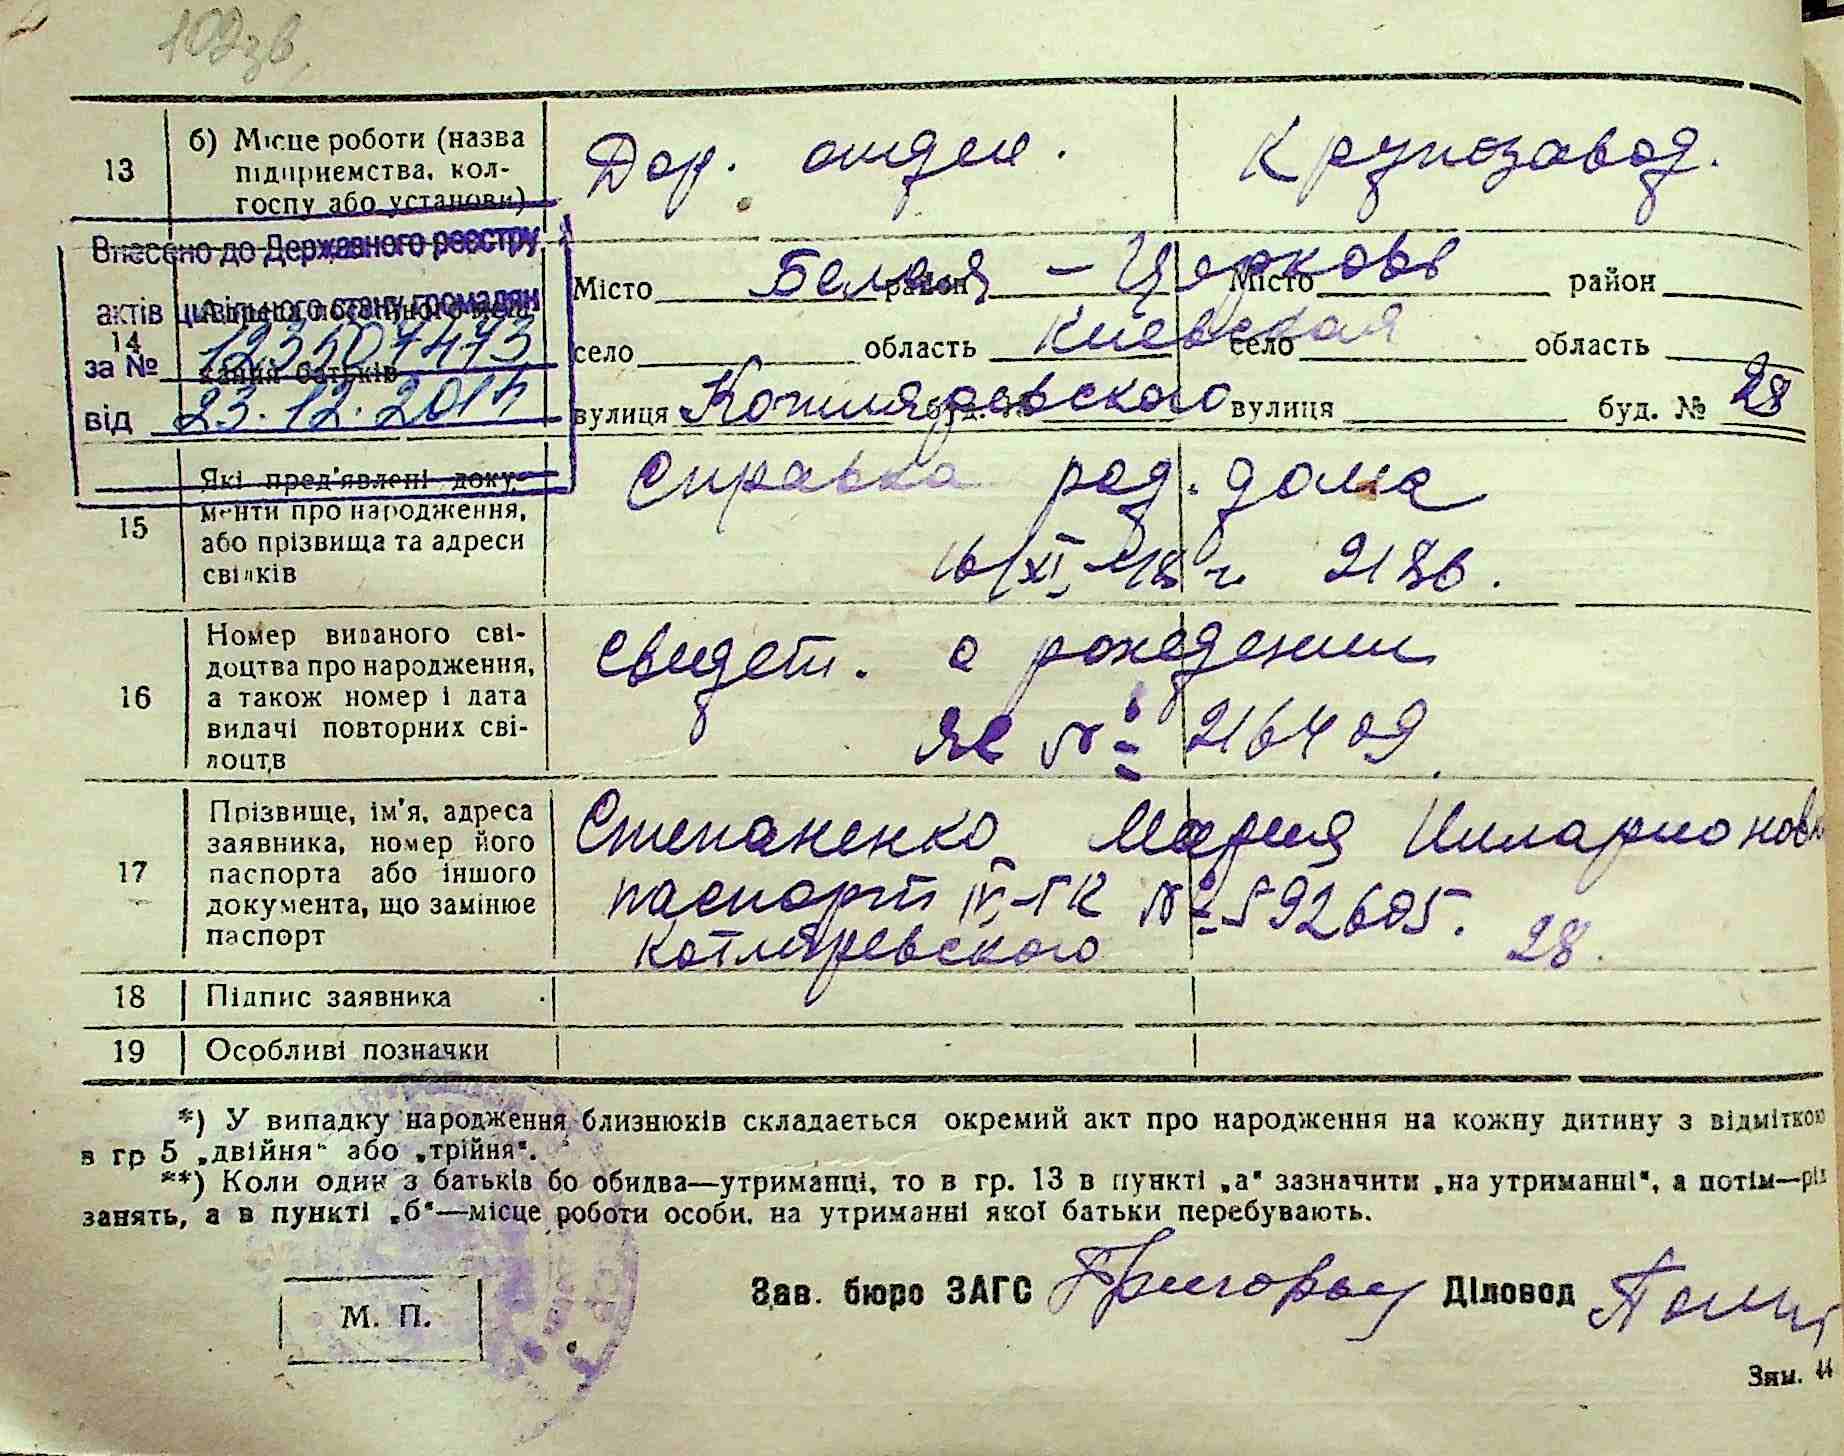 13 б) Місце роботи (назва підприємства, колгоспу або установи) Дор. отдел. Крупозавод.
Внесено до Державного реєстру
актів цивільного стану громадян
за № 123507473
від 23.12.2014
14
Місто Белая - Церковь район Місто район
село область Киевская село область
вулиця Котляревского буд. № вулиця буд. № 28
15 Які пред'явлені документи про народження, або прізвища та адреси свідків
Справка род. дома
16/XI-48 г. 2186.
16 Номер виданого свідоцтва про народження, а також номер і дата видачі повторних свідоцтв
Свидет. о рождении
ЯЕ № 216409.
17 Прізвище, ім'я, адреса заявника, номер його паспорта або іншого документа, що замінює паспорт
Степаненко Мария Илларионовн
паспорт IV-ГК № 592605.
Котляревского 28.
18 Підпис заявника
19 Особливі позначки
*) У випадку народження близнюків складається окремий акт про народження на кожну дитину з відміткою
в гр 5 „двійня“ або „трійня“.
**) Коли один з батьків бо обидва—утриманці, то в гр. 13 в пункті „а“ зазначити „на утриманні“, а потім—рід
занять, а в пункті „б“—місце роботи особи, на утриманні якої батьки перебувають.
Зав. бюро ЗАГС Діловод
М. П.
Зям. 44